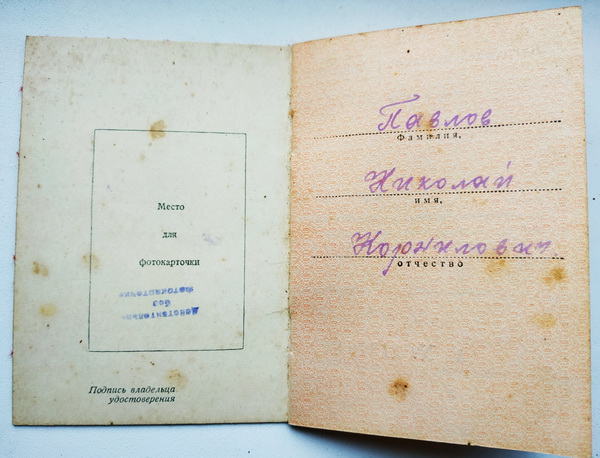 Место
для
фотокарточки
Действительно
без
фотокарточки
Подпись владельца
удостоверения
Павлов
Фамилия,
Николай
имя,
Корнилович
отчество